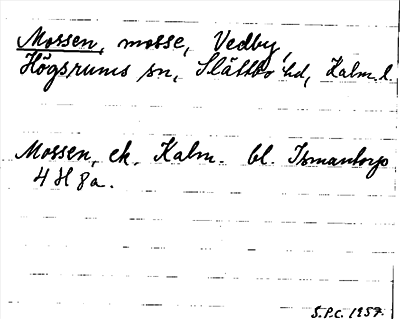 Mossen, mosse, Vedby,
Högsrums sn, Slättbo hd, Kalm. l.
Mossen, ek. Kalm. bl. Ismantorp
4 H 8 a.
S.P.C. 1957.